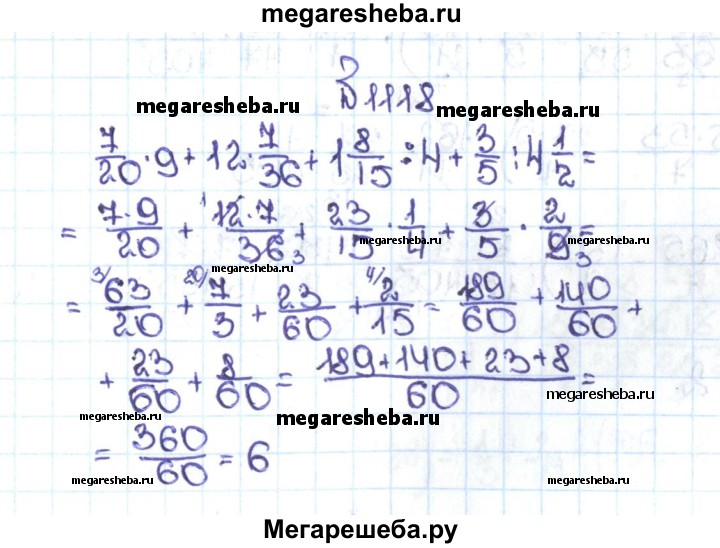 megaresheba.ru
№ 1118
megaresheba.ru megaresheba.ru
7/20 · 9 + 12 · 7/36 + 1 8/15 : 4 + 3/5 : 4 1/2 =
= 7·9/20 + 12·7/36 + 23/15 · 1/4 + 3/5 · 2/9 =
1 3 3
megaresheba.ru megaresheba.ru
= 3/ 63/20 + 20/ 7/3 + 23/60 + 4/ 2/15 = 189/60 + 140/60 +
megaresheba.ru
+ 23/60 + 8/60 = 189+140+23+8/60 =
megaresheba.ru megaresheba.ru megaresheba.ru
= 360/60 = 6
megaresheba.ru megaresheba.ru
Мегарешеба.ру